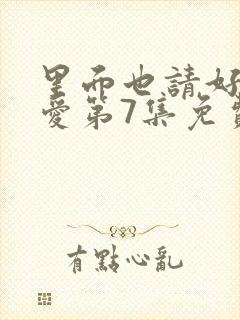 里面也請好
愛第7集免費
有點心亂